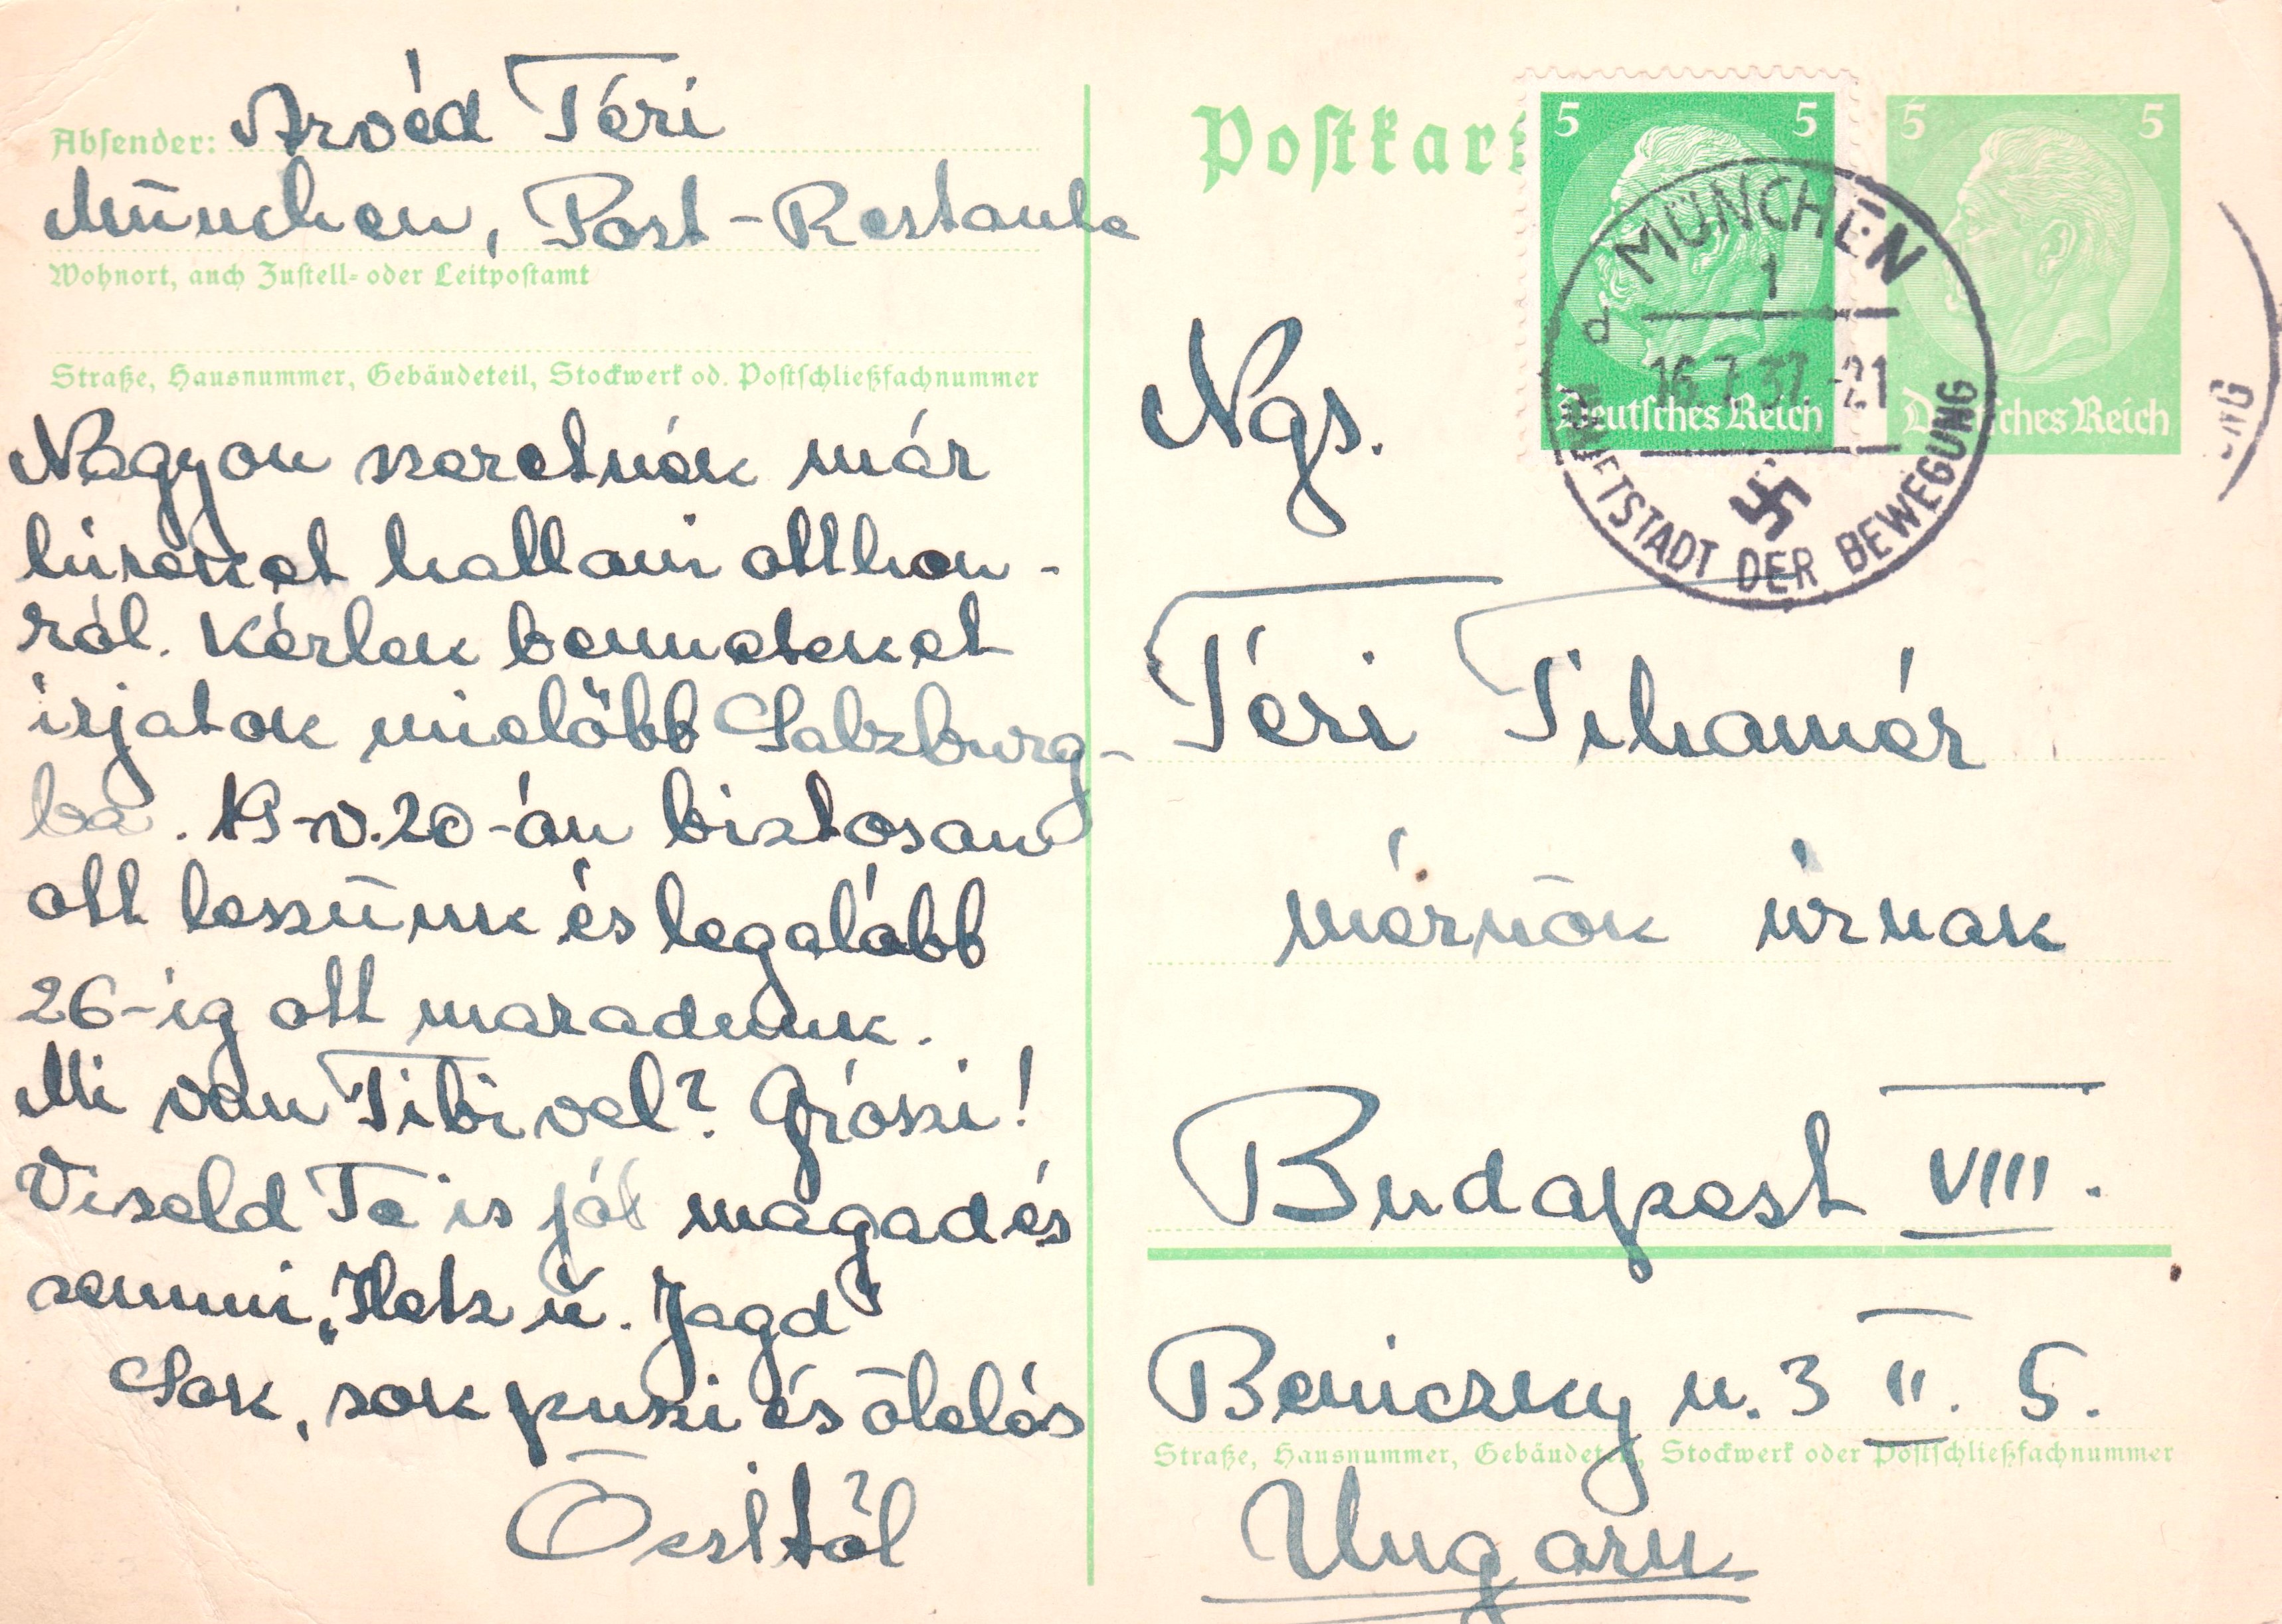 Absender: Arvéd Téri
München, Post-Restante
Wohnort, auch Zustell- oder Leitpostamt
Straße, Hausnummer, Gebäudeteil, Stockwerk od. Postschließfachnummer
Nagyon szeretnék már
híreket hallani otthon-
ról. Kérlek benneteket
írjatok mielőbb Salzburg-
ba. 19-v.20-án biztosan
ott leszünk és legalább
26-ig ott maradunk.
Mi van Tibi vel? Grószi!
Viseld Te is jól magad és
semmi „Hetz u. Jagd"
Sok, sok puszi és ölelés
Öcsitől
Postkart
5 5
Deutsches Reich
5 5
Deutsches Reich
MÜNCHEN
1
d
16.7.37.-21
HAUPTSTADT DER BEWEGUNG
UNG
Ngs.
Téri Tihamér
mérnök úrnak
Budapest VIII.
Beniczky u. 3 II. 5.
Straße, Hausnummer, Gebäudeteil, Stockwerk oder Postschließfachnummer
Ungarn